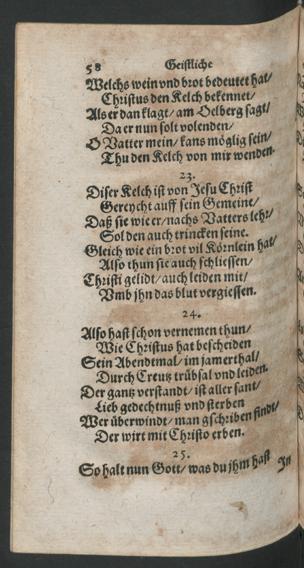 58 Geistliche
Welchs wein vnd brot bedeutet hat/
Christus den Kelch bekennet/
Als er dan klagt/ am Oelberg sagt/
Da er nun solt volenden/
O Vatter mein/ kans möglig sein/
Thu den Kelch von mir wenden.
23.
Diser Kelch ist von Jesu Christ
Gereycht auff sein Gemeine/
Daß sie wie er/ nachs Vatters lehr/
Sol den auch trincken seine.
Gleich wie ein brot vil Körnlein hat/
Also thun sie auch schliessen/
Christi gelidt/ auch leiden mit/
Vmb jhn das blut vergiessen.
24.
Also hast schon vernemen thun/
Wie Christus hat bescheiden
Sein Abendtmal/ im jamerthal/
Durch Creutz trübsal vnd leiden.
Der gantz verstandt/ ist aller sant/
Lieb gedechtnuß vnd sterben
Wer überwindt/ man gschriben findt/
Der wirt mit Christo erben.
25.
So halt nun Gott/ was du jhm hast
In